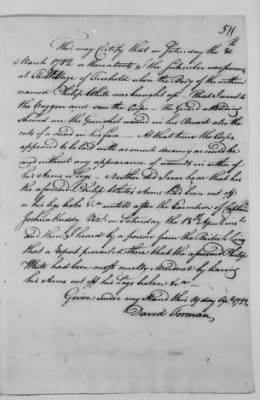 511
This may Certify that on Saturday the 30th
March 1782 or thereabouts the Subscriber was
at the Village of Freehold when the Body of the within
named Philip White was brought up. That I went to
the Waggon and saw the Corps. The Guard attending
shewed me the Gunshot wound in his Breast also the
cut of a sword in his face — At that time the Corps
appeared to be laid with as much decency as could be
and without any appearance of wounds in either of
his Arms or Legs — Neither did I ever hear that he
the aforesaid Philip White's Arms had been cut off
or his legs broke &c untill after the Execution of Captain
Joshua Huddy Viz. on Saturday the 13th April
and then I heard by a person from the British lines
that a report prevailed there that the aforesaid Philip
White had been most cruelly Murdered by having
his Arms cut off his Legs broken &c —
Given under my Hand this 19 day Apl. 1782
David Forman